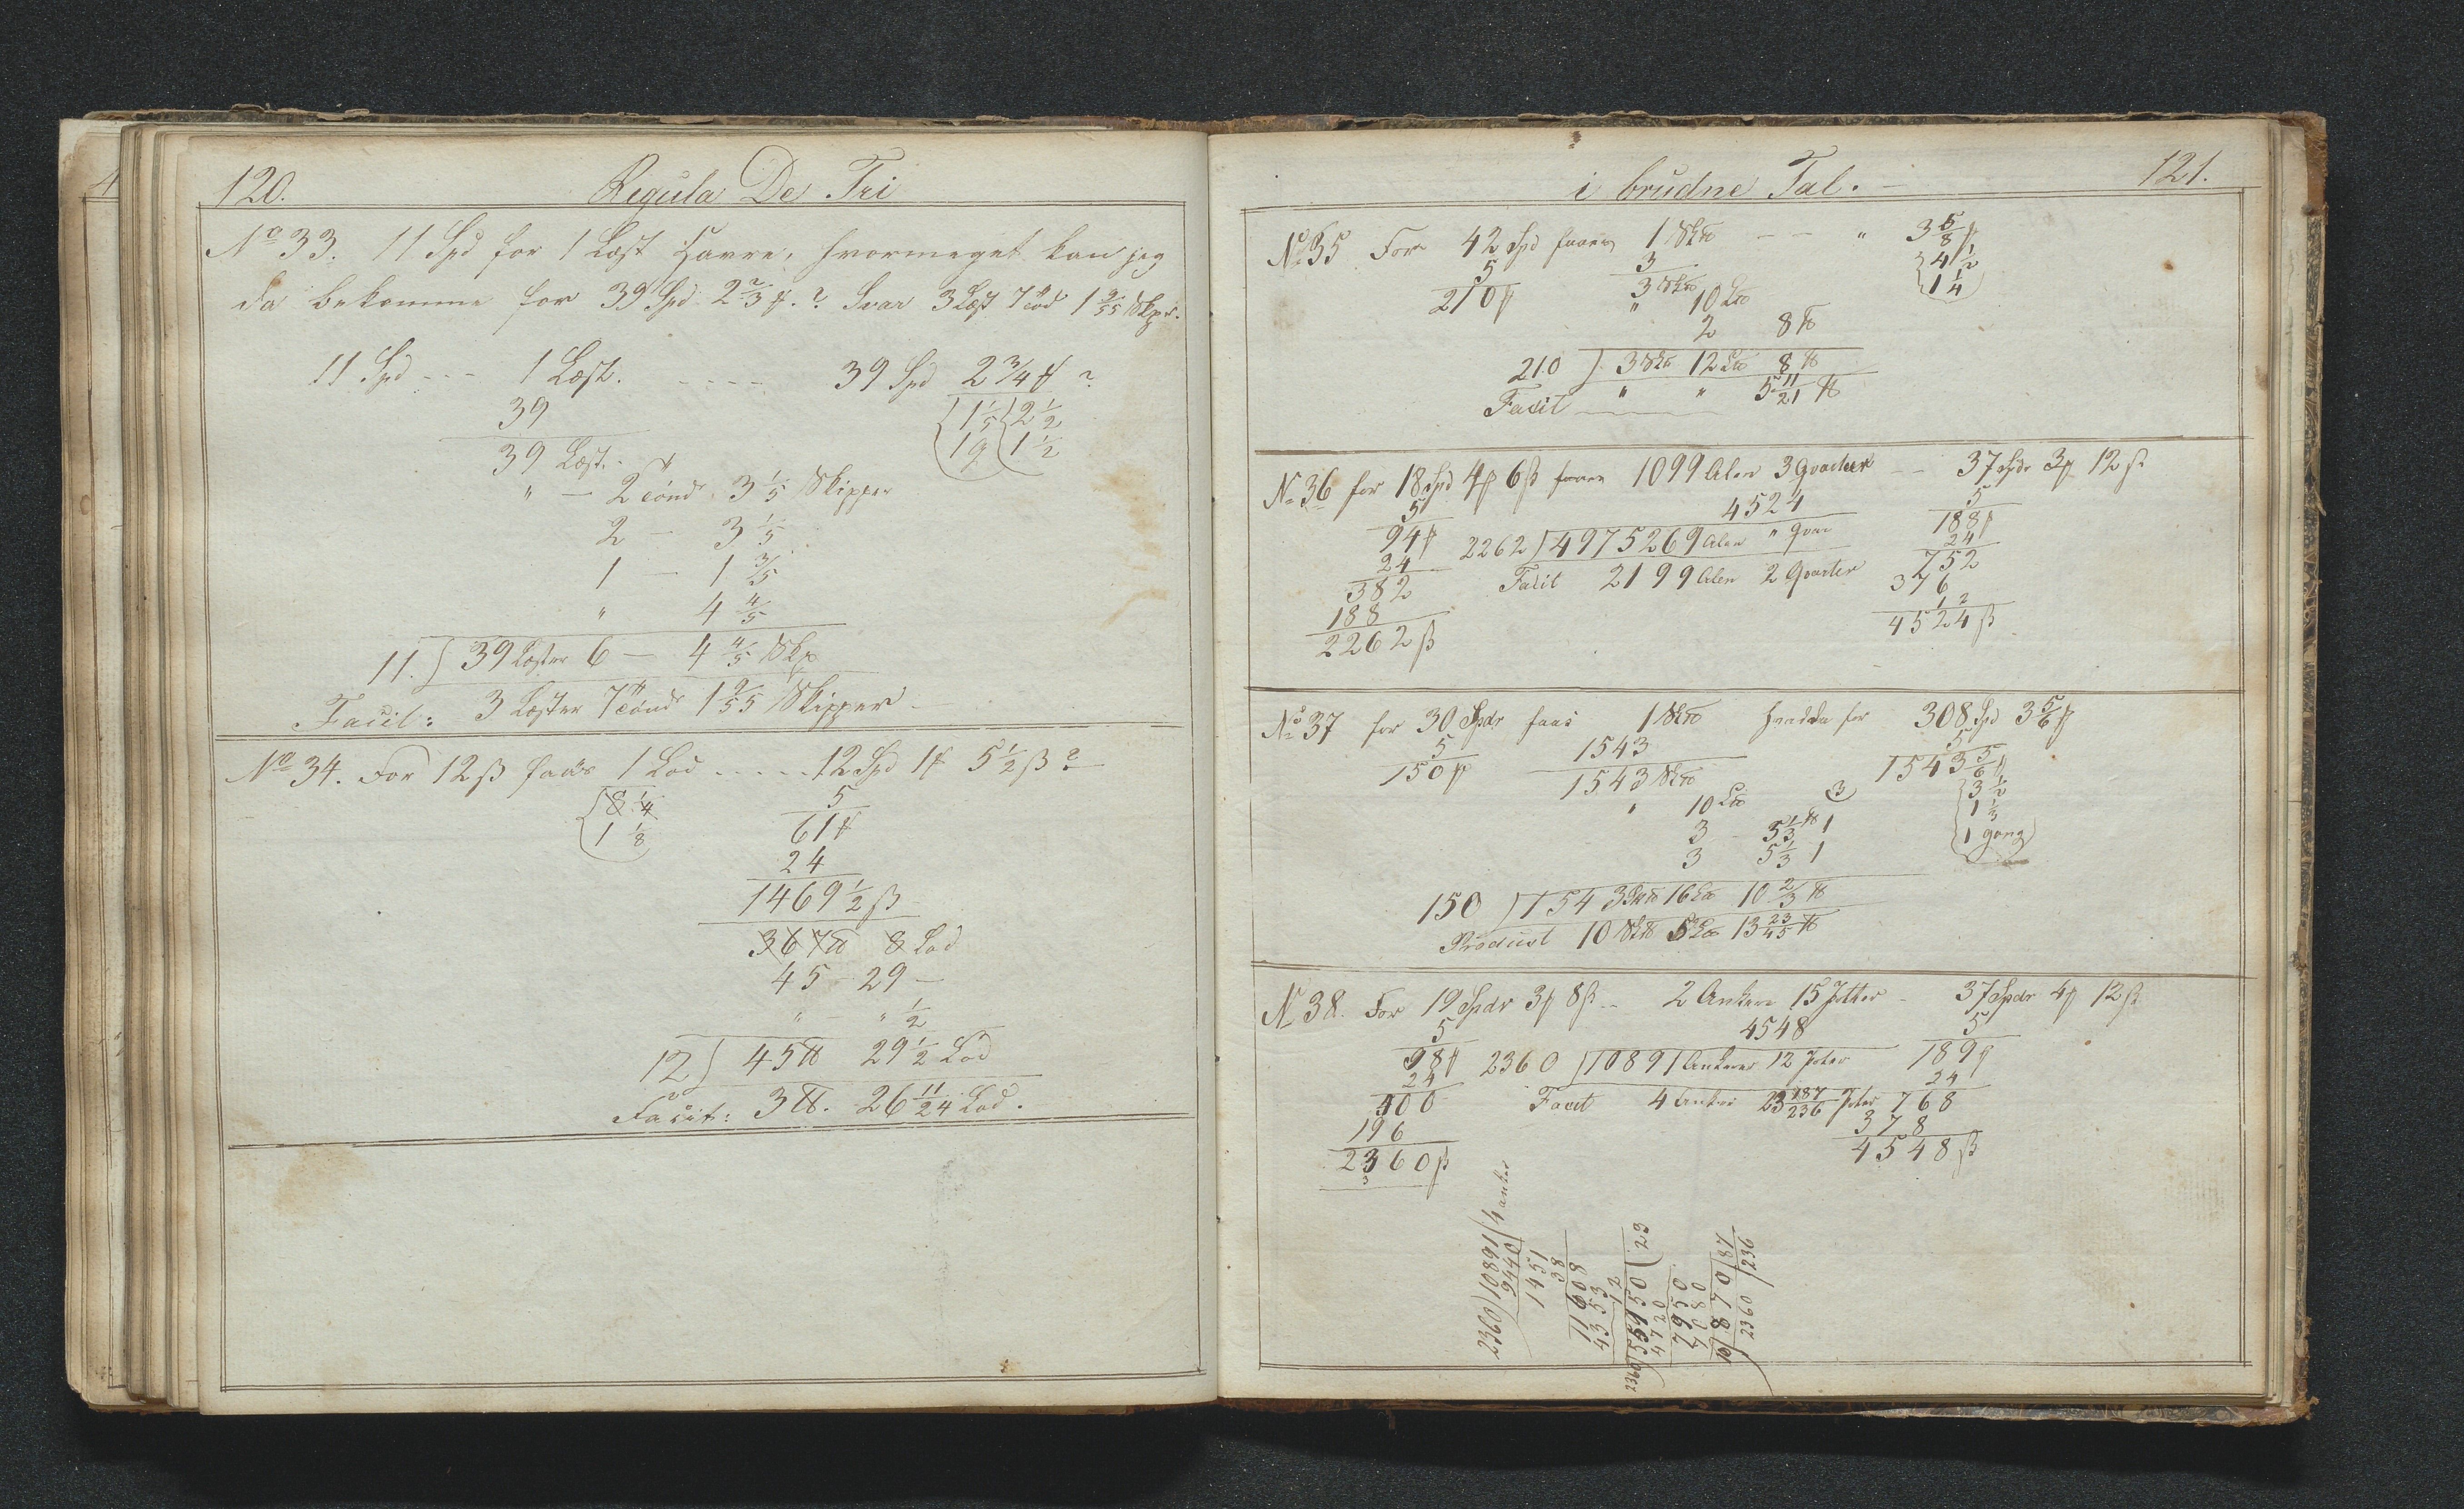 120.
Regula De Tri
No 33. 11 Spd for 1 Læst Havre, hvormeget kan jeg
da bekomme for 39 Spd 2 2/3 ß.? Svar 3 Læst 7 Tød 1 9/55 Skpr.
11 Spd --- 1 Læst. ---- 39 Spd 2 3/4 ?
39
1 1/5 2 1/2
39 Læst.
19 1 1/2
" - 2 Tønd 3 1/5 Skipper
2 - 3 1/5
1 - 1 3/5
" 4 4/5
11.) 39 Læster 6 - 4 4/5 Skp
Facit: 3 Læster 7 Tønd 1 9/55 Skipper
No 34. For 12 ß faaes 1 Lod ..... 12 Spd 1 5 1/2 ß?
8 1/4
5
1 1/8
61
24
1469 1/2 ß
367 ℔ 8 Lod
45 - 29 -
" - " 1/2
12) 45 ℔ 29 1/2 Lod
Facit: 3 ℔. 26 11/24 Lod.
i brudne Tal.
121.
No 35 For 42 Spd faaes 1 Sk℔ -- " 3 5/8
5
3
4 1/2
210
3 Sk℔
1 1/4
" 10 L℔
2 8 ℔
210 ) 3 Sk℔ 12 L℔ 8 ℔
Facit " " 5 11/21 ℔
No 36 for 18 Spd 4 6 ß faaes 1099 Alen 3 Qvarteer -- 37 Spdr 3 12 ß
5
4524
5
94
2262 ) 4975269 Alen " Qvar
188
24
24
382
Facit 2199 Alen 2 Qvarter
752
188
376
2262 ß
12
4524 ß
No 37 for 30 Spdr faaes 1 Sk℔ hvadda for 308 Spd 3 5/6
5
1543
5
150
1543 Sk℔
1543 5/6
" 10 L℔
3
3 1/2
3 - 5 1/3 ℔ 1
1 1/3
3 5 1/3 1
1 gang
150 ) 1543 Sk℔ 16 L℔ 10 2/3 ℔
Product 10 Sk℔ 5 L℔ 13 23/45 ℔
No 38. For 19 Spdr 3 8 ß -- 2 Ankere 15 Potter - 37 Spdr 4 12 ß
5
4548
5
98
2360 ) 10891 Ankere 12 Poter
189
24
24
400
Facit 4 Anker 23 187/236 Poter
768
196
378
2360 ß
4548 ß
2360 ) 10891 ( 4 anker
9440
1451
38
11608
4353
12
2360 ) 55150 ( 23
4720
7950
7080
10 ) 870 ( 87
2360 ( 236